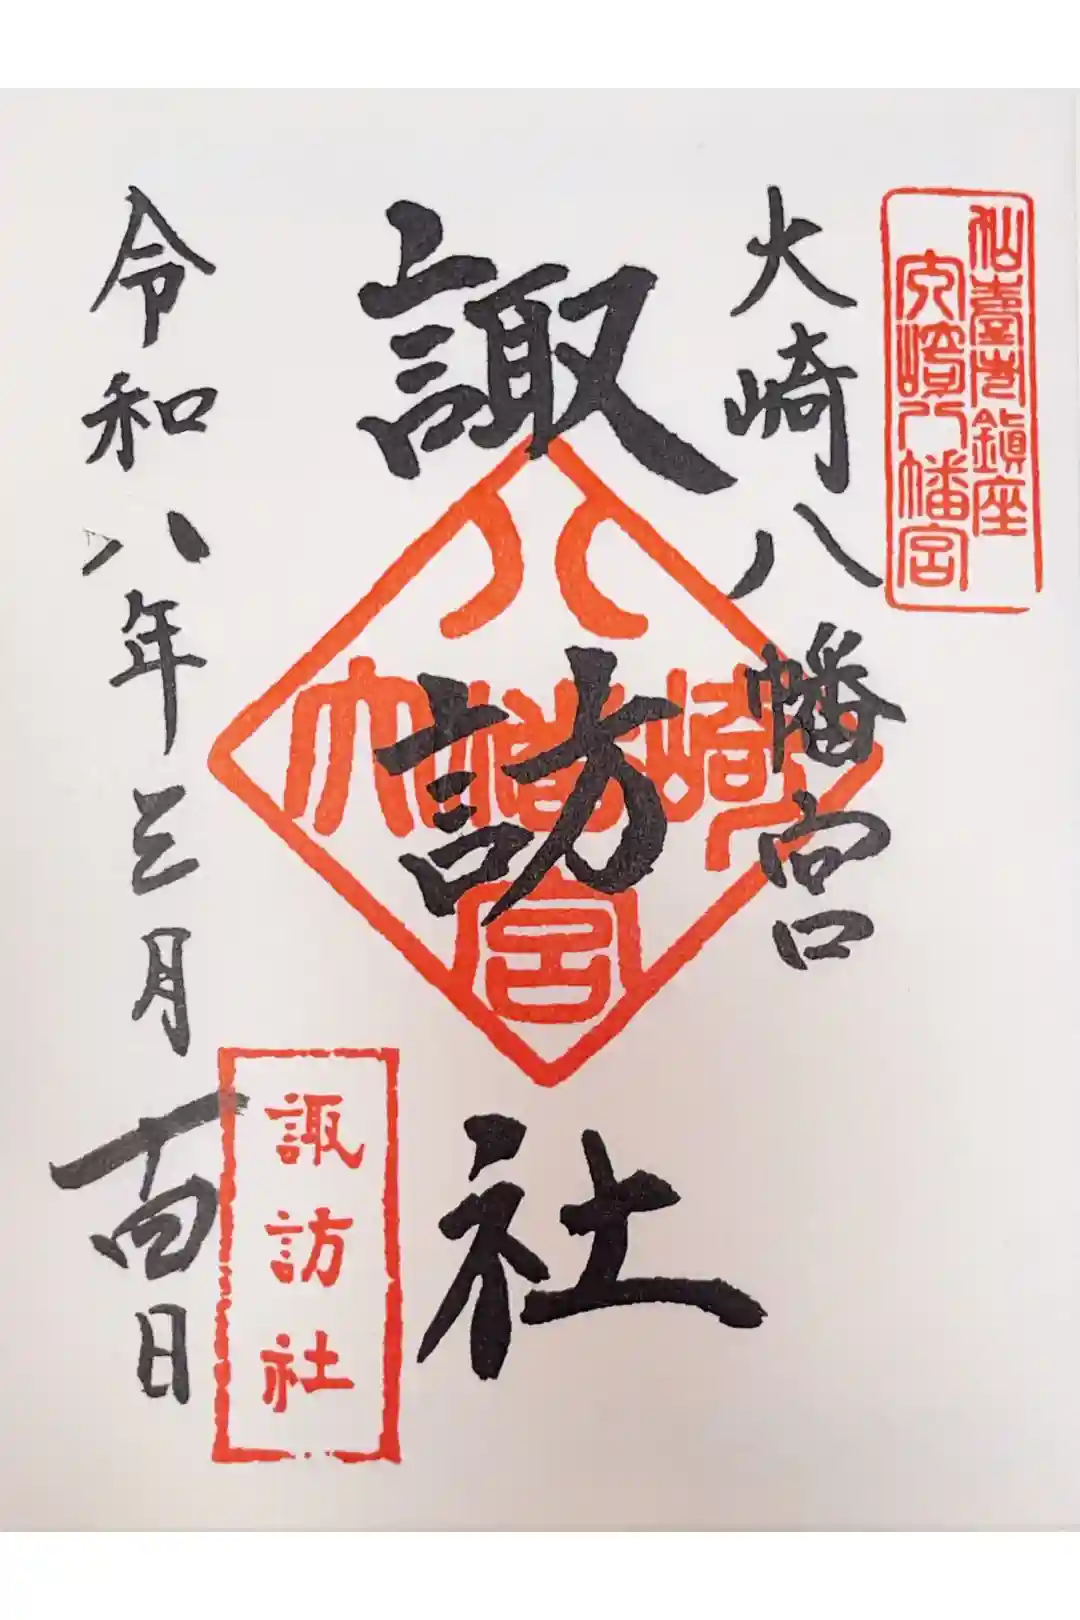 仙臺市鎮座
大崎八幡宮
大崎八幡宮
諏訪社
大崎八幡宮
諏訪社
令和八年三月 日